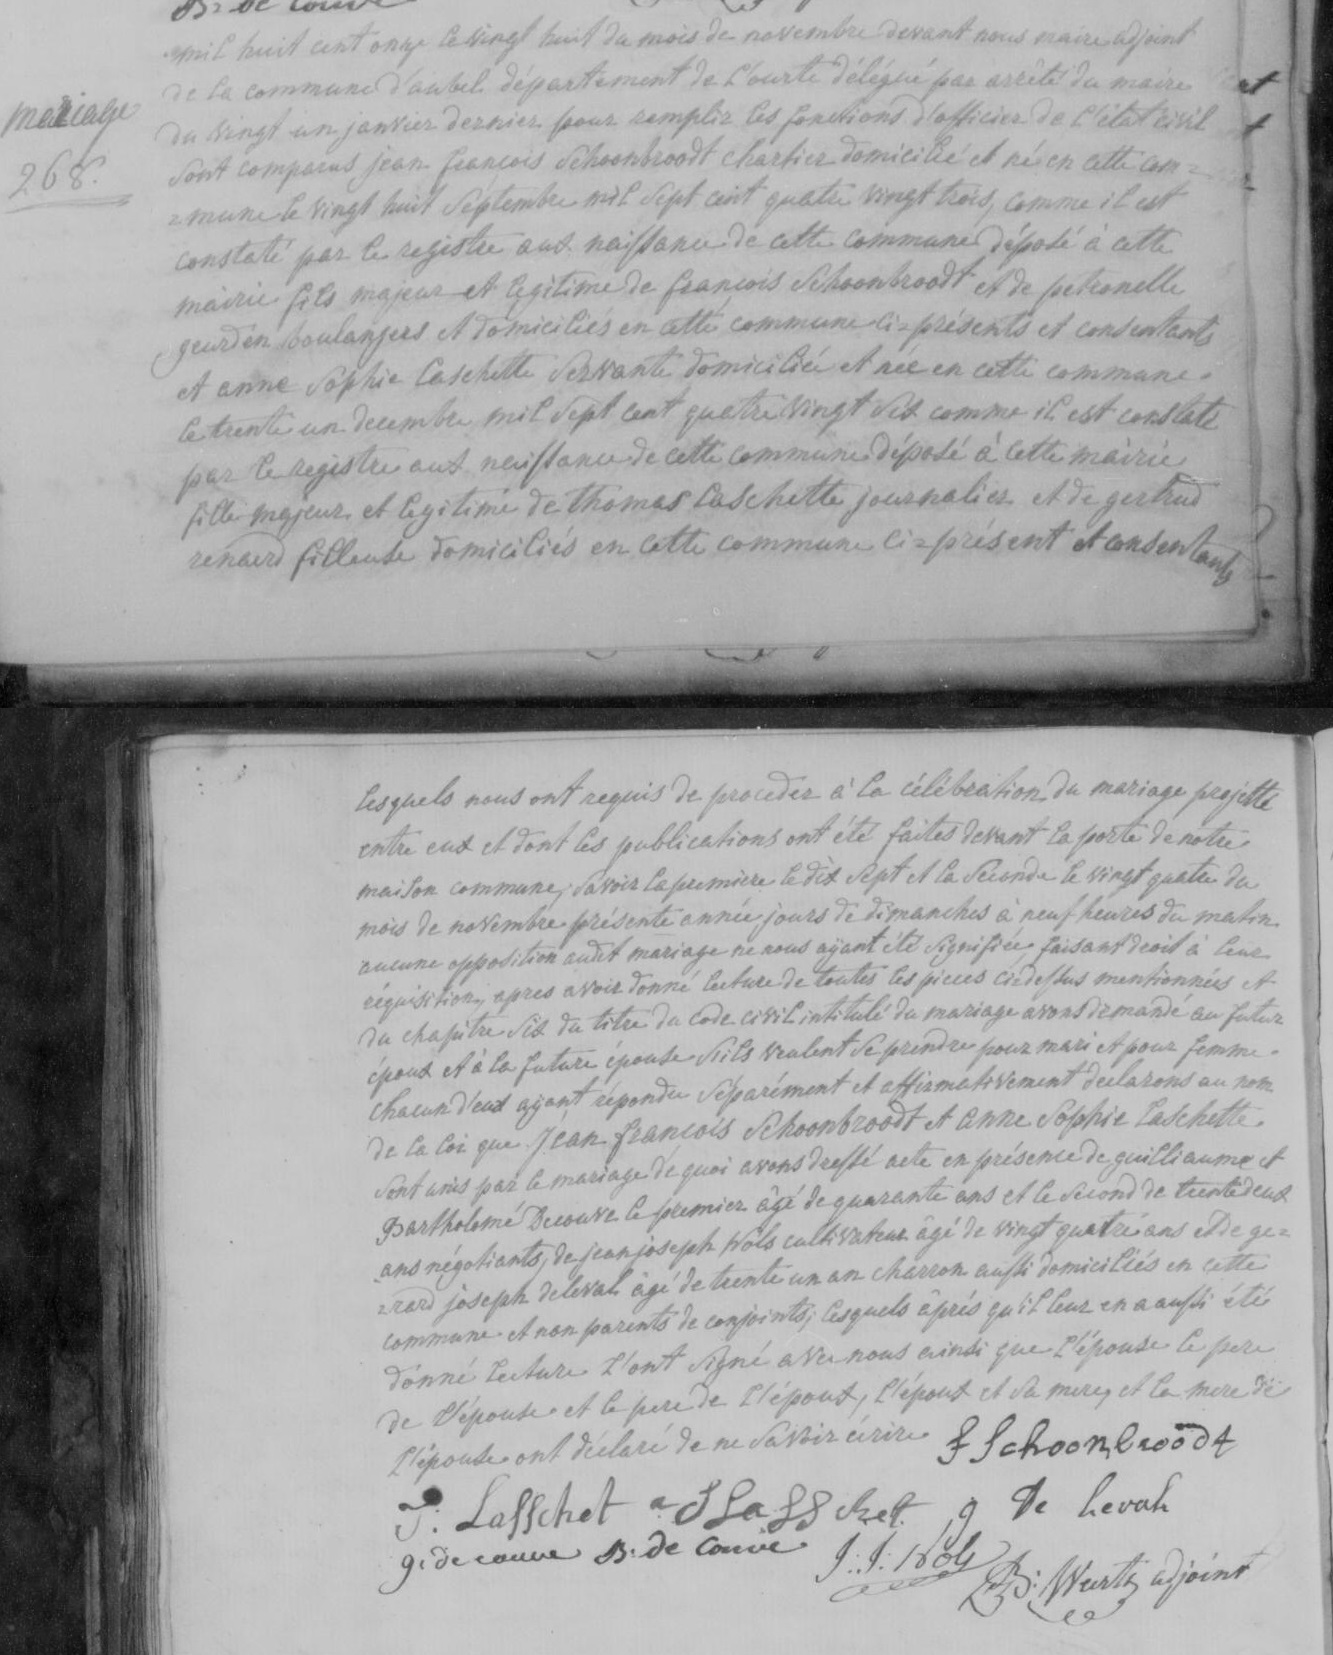 B. de Couve
mil huit cent onze le vingt huit du mois de novembre devant nous maire adjoint
de la commune d'aubel département de L'ourte délégué par arrêté du maire
mariage
du vingt un janvier dernier pour remplir les fonctions d'officier de L'état civil
268.
sont comparus jean françois Schoonbroodt chartier domicilié et né en cette com=
=mune le vingt huit Septembre mil Sept cent quatre vingt trois, comme il est
constaté par le registre aux naissance de cette commune déposé à cette
mairie fils majeur et legitime de françois Schoonbroodt et de petronelle
geurden boulangers et domiciliés en cette commune ci=présents et consentants
et anne Sophie Laschette Servante domiciliée et née en cette commune
le trente un decembre mil Sept cent quatre vingt six comme il est constaté
par le registre aux naissance de cette commune déposé à cette mairie
fille majeur et legitime de thomas Laschette journalier et de gertrud
renard filleuse domiciliés en cette commune ci=présent et consentants
lesquels nous ont requis de proceder à la célébration du mariage projetté
entre eux et dont les publications ont été faites devant la porte de notre
maison commune, savoir la premiere le dix sept et la Seconde le vingt quatre du
mois de novembre présente année jours de dimanches à neuf heures du matin
aucune opposition audit mariage ne nous ayant été signifiée, faisant droit à leur
réquisition, apres avoir donné lecture de toutes les pieces ci=dessus mentionnées et
du chapitre six du titre du code civil intitulé du mariage avons demandé au futur
époux et à la future épouse s'ils veulent se prendre pour mari et pour femme
chacun d'eux ayant répondu séparément et affirmativement declarons au nom
de la loi que jean françois Schoonbroodt et anne Sophie Laschette
sont unis par le mariage de quoi avons dressé acte en présence de guilliaume et
Bartholomé Decouve le premier âgé de quarante ans et le Second de trente deux
ans négotiants, de jean joseph Wols cultivateur âgé de vingt quatre ans et de ge=
=rard joseph deleval âgé de trente un an charron aussi domiciliés en cette
commune et non parents de conjoints; lesquels âprés qu'il leur en a aussi été
donné lecture l'ont signé avec nous ainsi que L'épouse le pere
de L'épouse et le pere de L'époux, L'époux et sa mere, et la mere de
L'épouse ont déclaré de ne savoir écrire f Schoonbroodt
T. Lasschet a S Lasschet g de Levah
g. de couve B. de Couve J. J. Wols
B. Wurth adjoint